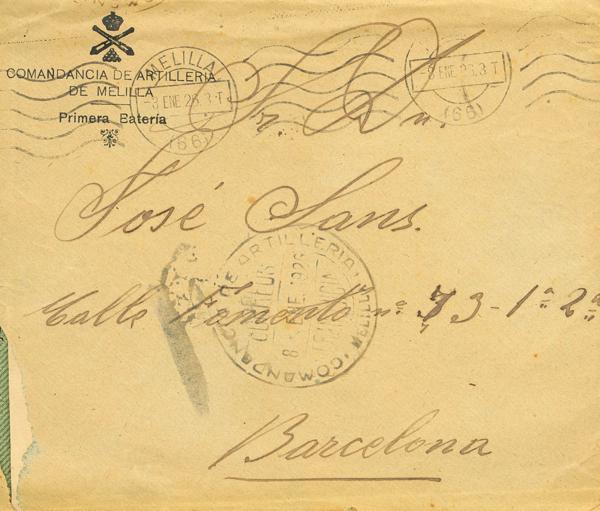 COMANDANCIA DE ARTILLERIA
DE MELILLA
Primera Batería
MELILLA
-8 ENE 26.3-T
(66)
-8 ENE 26.3-T
(66)
Sr. Dn.
José Sans.
Calle nº 73-1ª 2ª
Barcelona
COMANDANCIA DE ARTILLERIA
MELILLA
8 ENE. 1926
FRANQUICIA